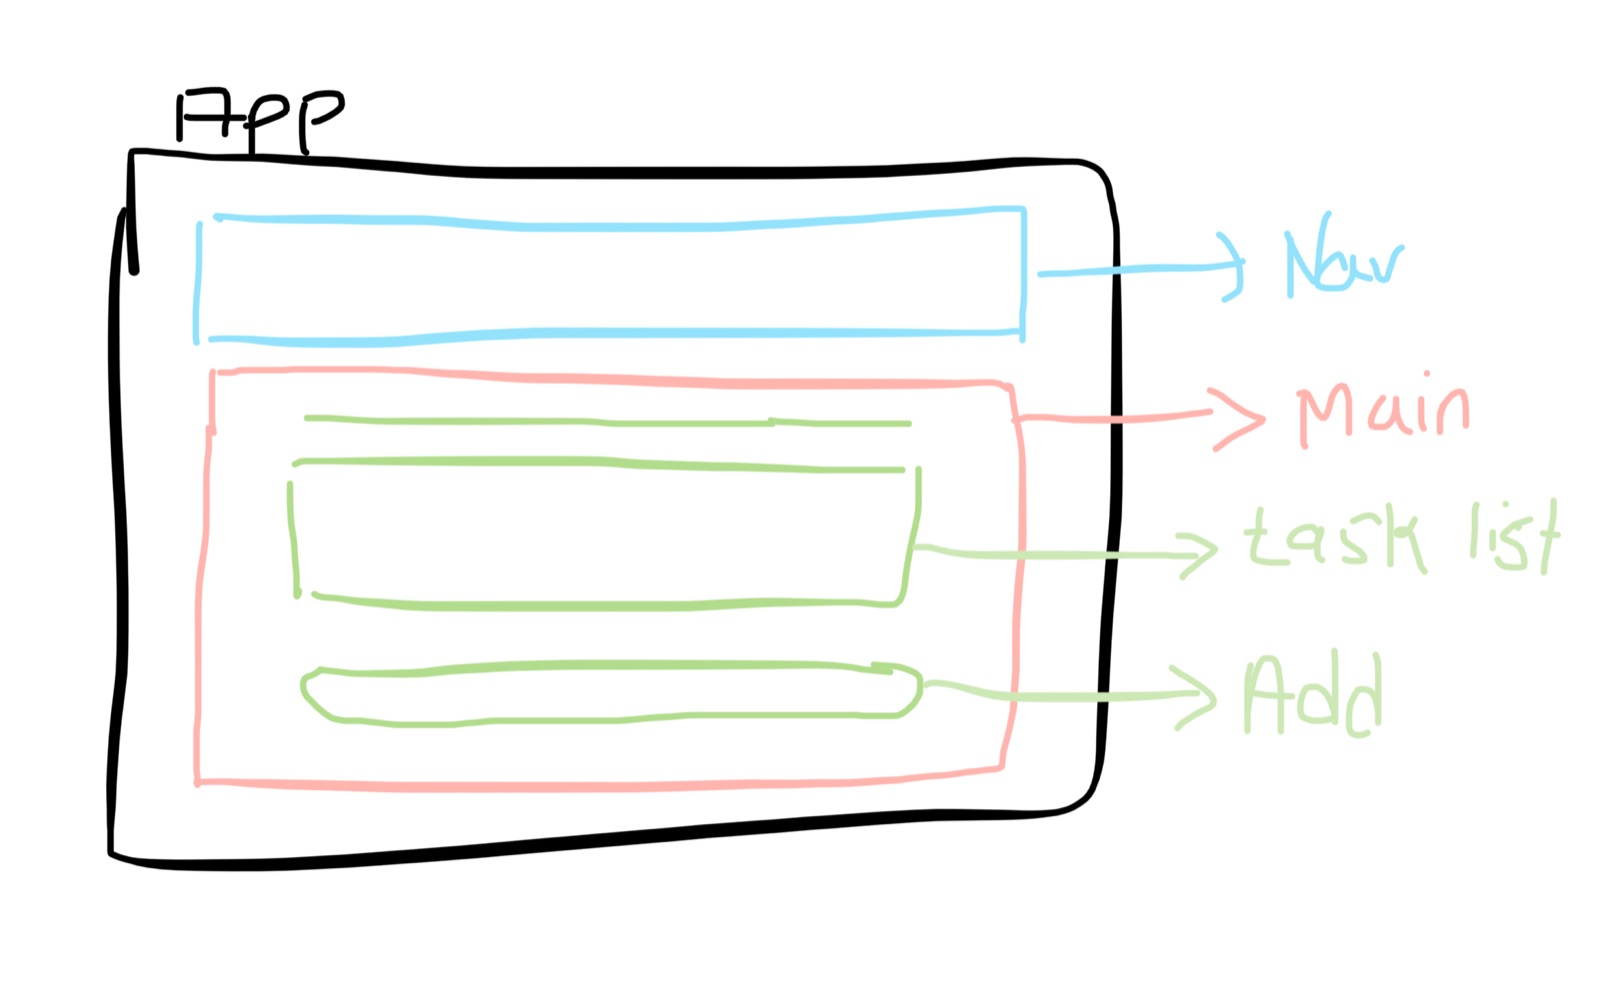 App
Nav
Main
task list
Add